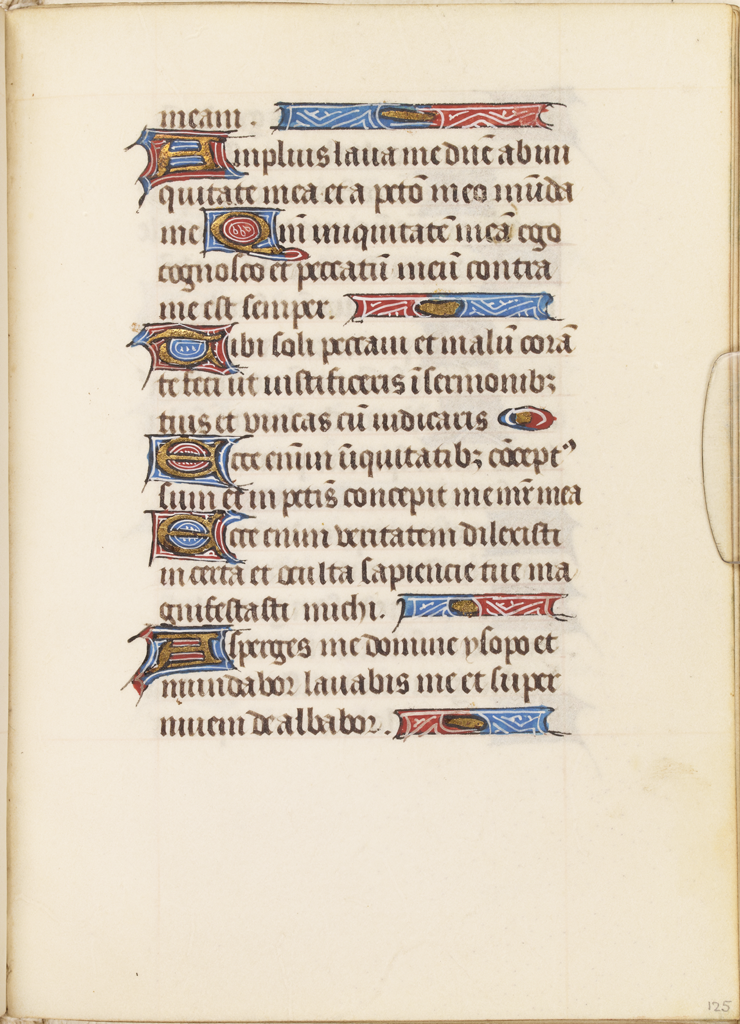 meam .
Amplius laua me dñe ab ini
quitate mea et a pctō meo mūda
me Qm̄ iniquitatē meā ego
cognosco et peccatū meū contra
me est semper.
Tibi soli peccaui et malū corā
te feci ut iustificeris ī sermonibꝫ
tuis et vincas cū iudicaris
Ecce enim īiquitatibꝫ cōceptꝰ
sum et in pctīs concepit me mr̄ mea
Ecce enim veritatem dilexisti
incerta et oculta sapiencie tue ma
gnifestasti michi.
Asperges me domine ysopo et
mundabor lauabis me et super
niuem de albabor.
125